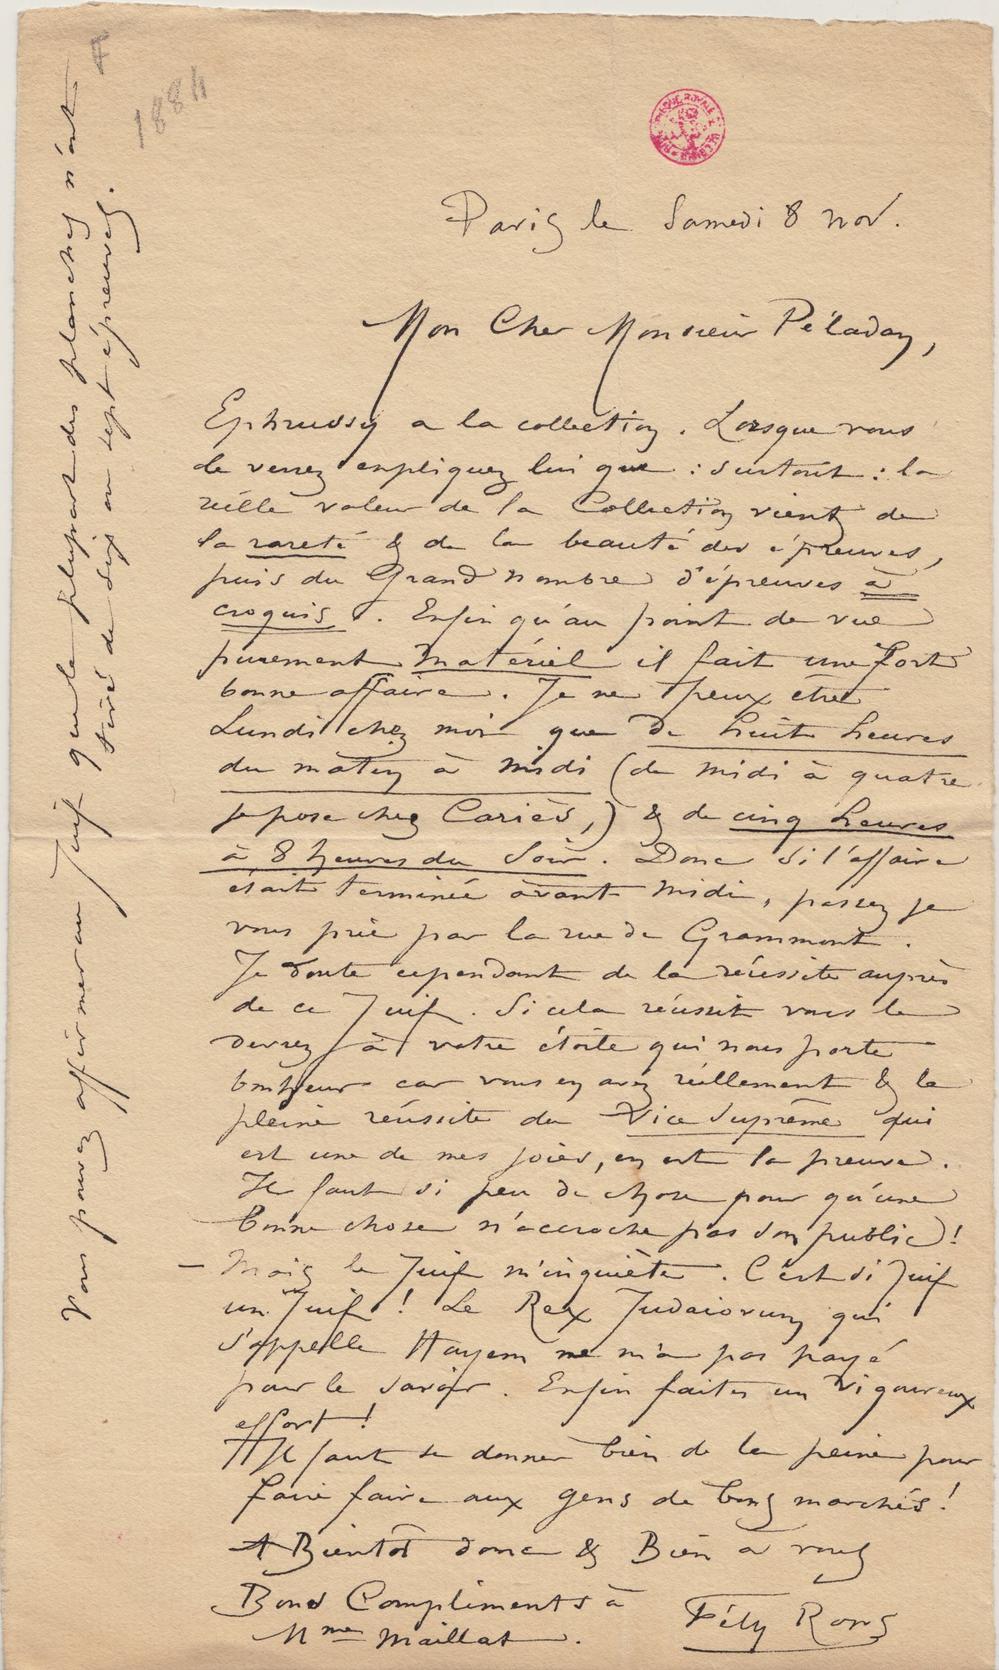 1884
Paris le Samedi 8 nov.
Mon Cher Monsieur Péladan,
Ephrussy a la collection. Lorsque vous
le verrez expliquez lui que : surtout : la
réelle valeur de la Collection vient de
la rareté & de la beauté des épreuves,
puis du Grand nombre d'épreuves à
croquis. Enfin qu'au point de vue
purement matériel il fait une fort
bonne affaire. Je ne peux être
Lundi chez moi que de huit heures
du matin à midi (de midi à quatre
je pose chez Cariès,) & de cinq heures
à 8 heures du Soir. Donc si l'affaire
était terminée avant midi, passez je
vous prie par la rue de Grammont.
Je doute cependant de la réussite auprès
de ce Juif. Si cela réussit nous le
devrez à votre étoile qui nous porte
bonheur car vous en avez réellement & la
pleine réussite du Vice Suprême qui
est une de mes joies, en est la preuve.
Il faut si peu de chose pour qu'une
bonne chose n'accroche pas son public !
– Mais le Juif m'inquiète. C'est si Juif
un Juif ! Le Rex Judaiorum qui
s'appelle Hayem ne m'a pas payé
pour le savoir. Enfin faites un vigoureux
effort !
Il faut se donner bien de la peine pour
faire faire aux gens de bons marchés !
A Bientôt donc & Bien à vous
Bons Compliments à
Mme Maillat.
Fély Rops
Vous pouvez affirmer au Juif que la plupart des planches n'ont
tiré de six ou sept épreuves.